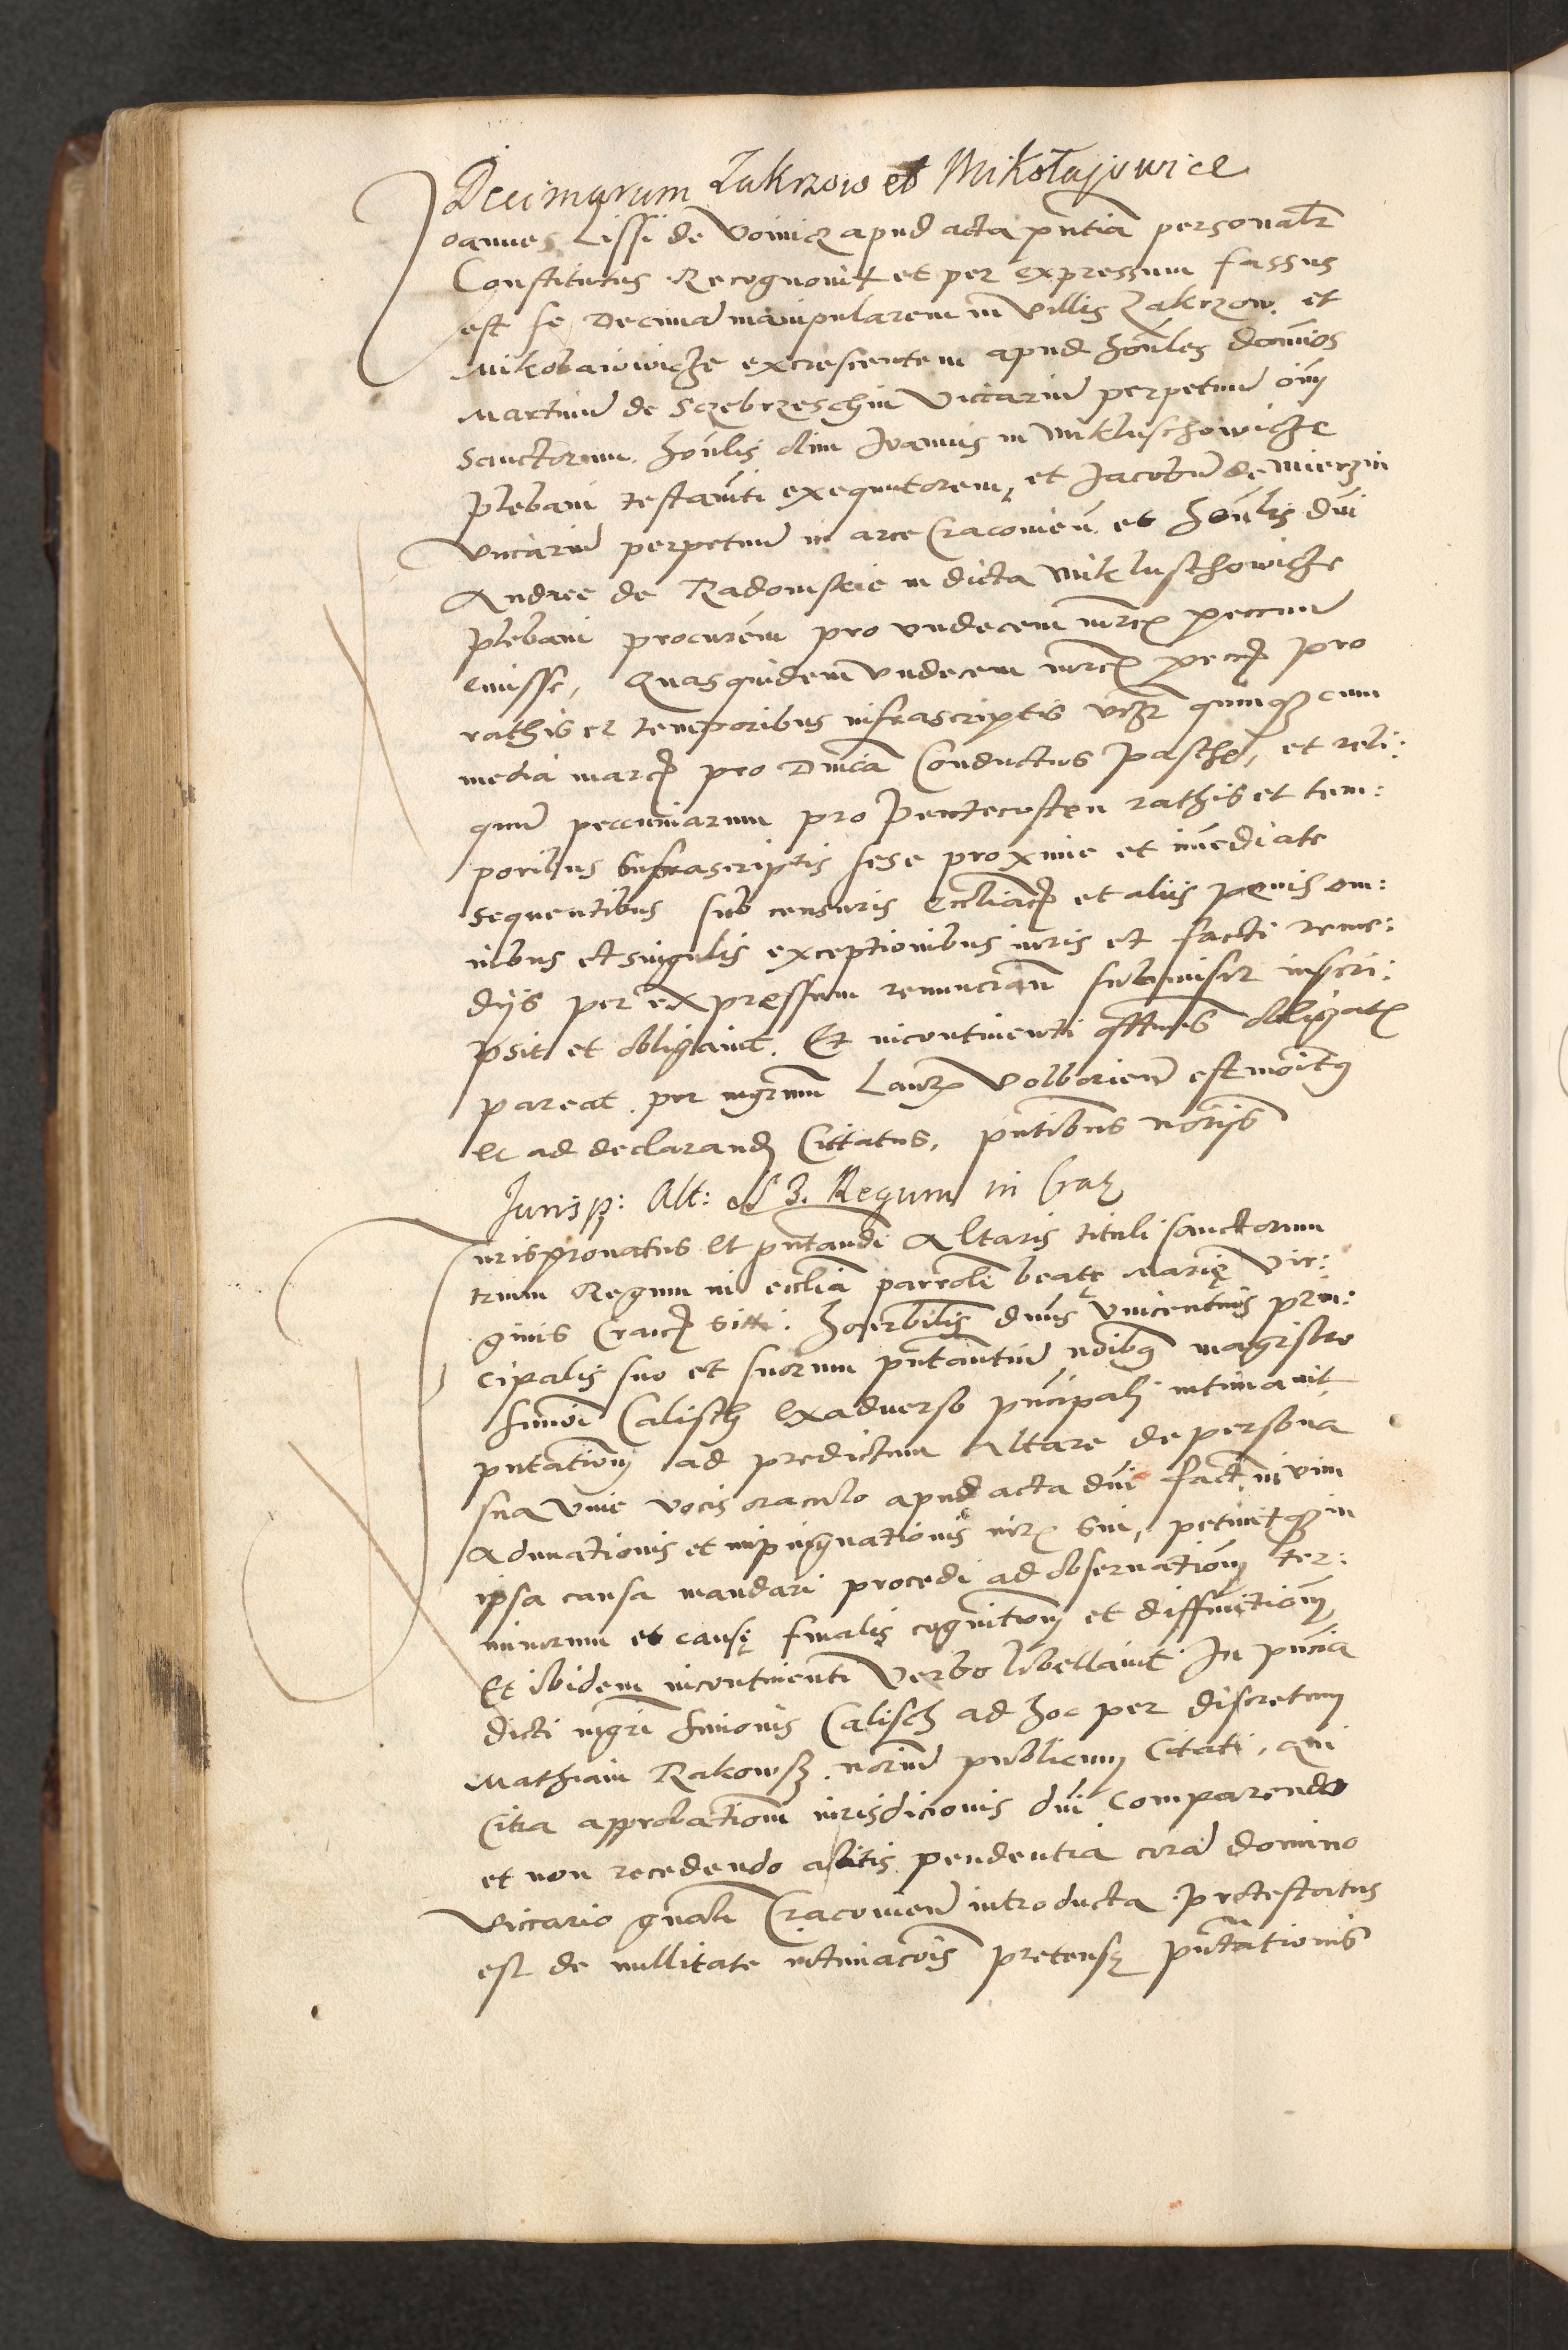 Decimarum Zakrzow et Mikołajowice
Joannes Lissi de Voinicz apud acta pntia personalr
Constitutus Recognovit et per expressum fassus
est se Decimā manipularem in villis Zakrzow et
Mikolaiowicze excrescentem apud honles dominos
Martinū de Sczebrzeschin viccariū perpetuū oīm
Sanctorum honlis olim Joannis in Mikluschowicze
plebani testamti exequutorem, et Jacobū de Mierzin
viccariū perpetuū in arce Cracovien et honlis dni
Andree de Radomskie in dicta Mikluschowicze
plebani procurem pro undecem mrcs peccuniū
emisse, Quasquidem undecem mrcs pecc pro
rathis et temporibus infrascriptis vidz quinqz cum
media marc pro Dnica Conductus Pasche, et reli:
quū peccuniarum pro Pentecosten rathis et tem:
poribus infrascriptis sese proxime et immediate
sequentibus sub censuris eccliac et aliis penis om:
nibus et singulis exceptionibus iuris et facti reme:
diis per expressum renuncian submisit inscri:
psit et obligavit. Et incontinenti obligats
pareat per mgrmm Laurz Volborien est monitq
et ad declarand Cittatus, pntibus noriis
Jurisp: Alt: SS 3. Regum in Crac
Jurispronatus et pntandi Altaris tituli sanctorum
trium Regum in ecclia parroli beatę Marię Vir:
ginis Cracę sitti. Honrbilis dnus Vincentius prin:
cipalis suo et suorum pntantiū noibq magistro
Simoi Calisch exadverso pncipali intimavit
pntationē ad predictum Altare de persona
sua vive vocis oraculo apud acta dni fact in vim
Adunationis et impugnationis iurs sui, petivitqz in
ipsa causa mandari procedi ad observationē ter:
minorum et causę finalis cognitionē et diffinitionē
Et ibidem incontinenti Verbo libellavit In pncia
dicti mgri Simonis Calisch ad hoc per discretum
Mathiam Rakowsz noriū publicum Citati, qui
Citra approbationē iurisdicionis dni comparendo
et non recedendo a litis pendentia corā domino
Viccario gnali Cracovien introducta protestatus
est de nullitate intimacōis pretensę pntationis